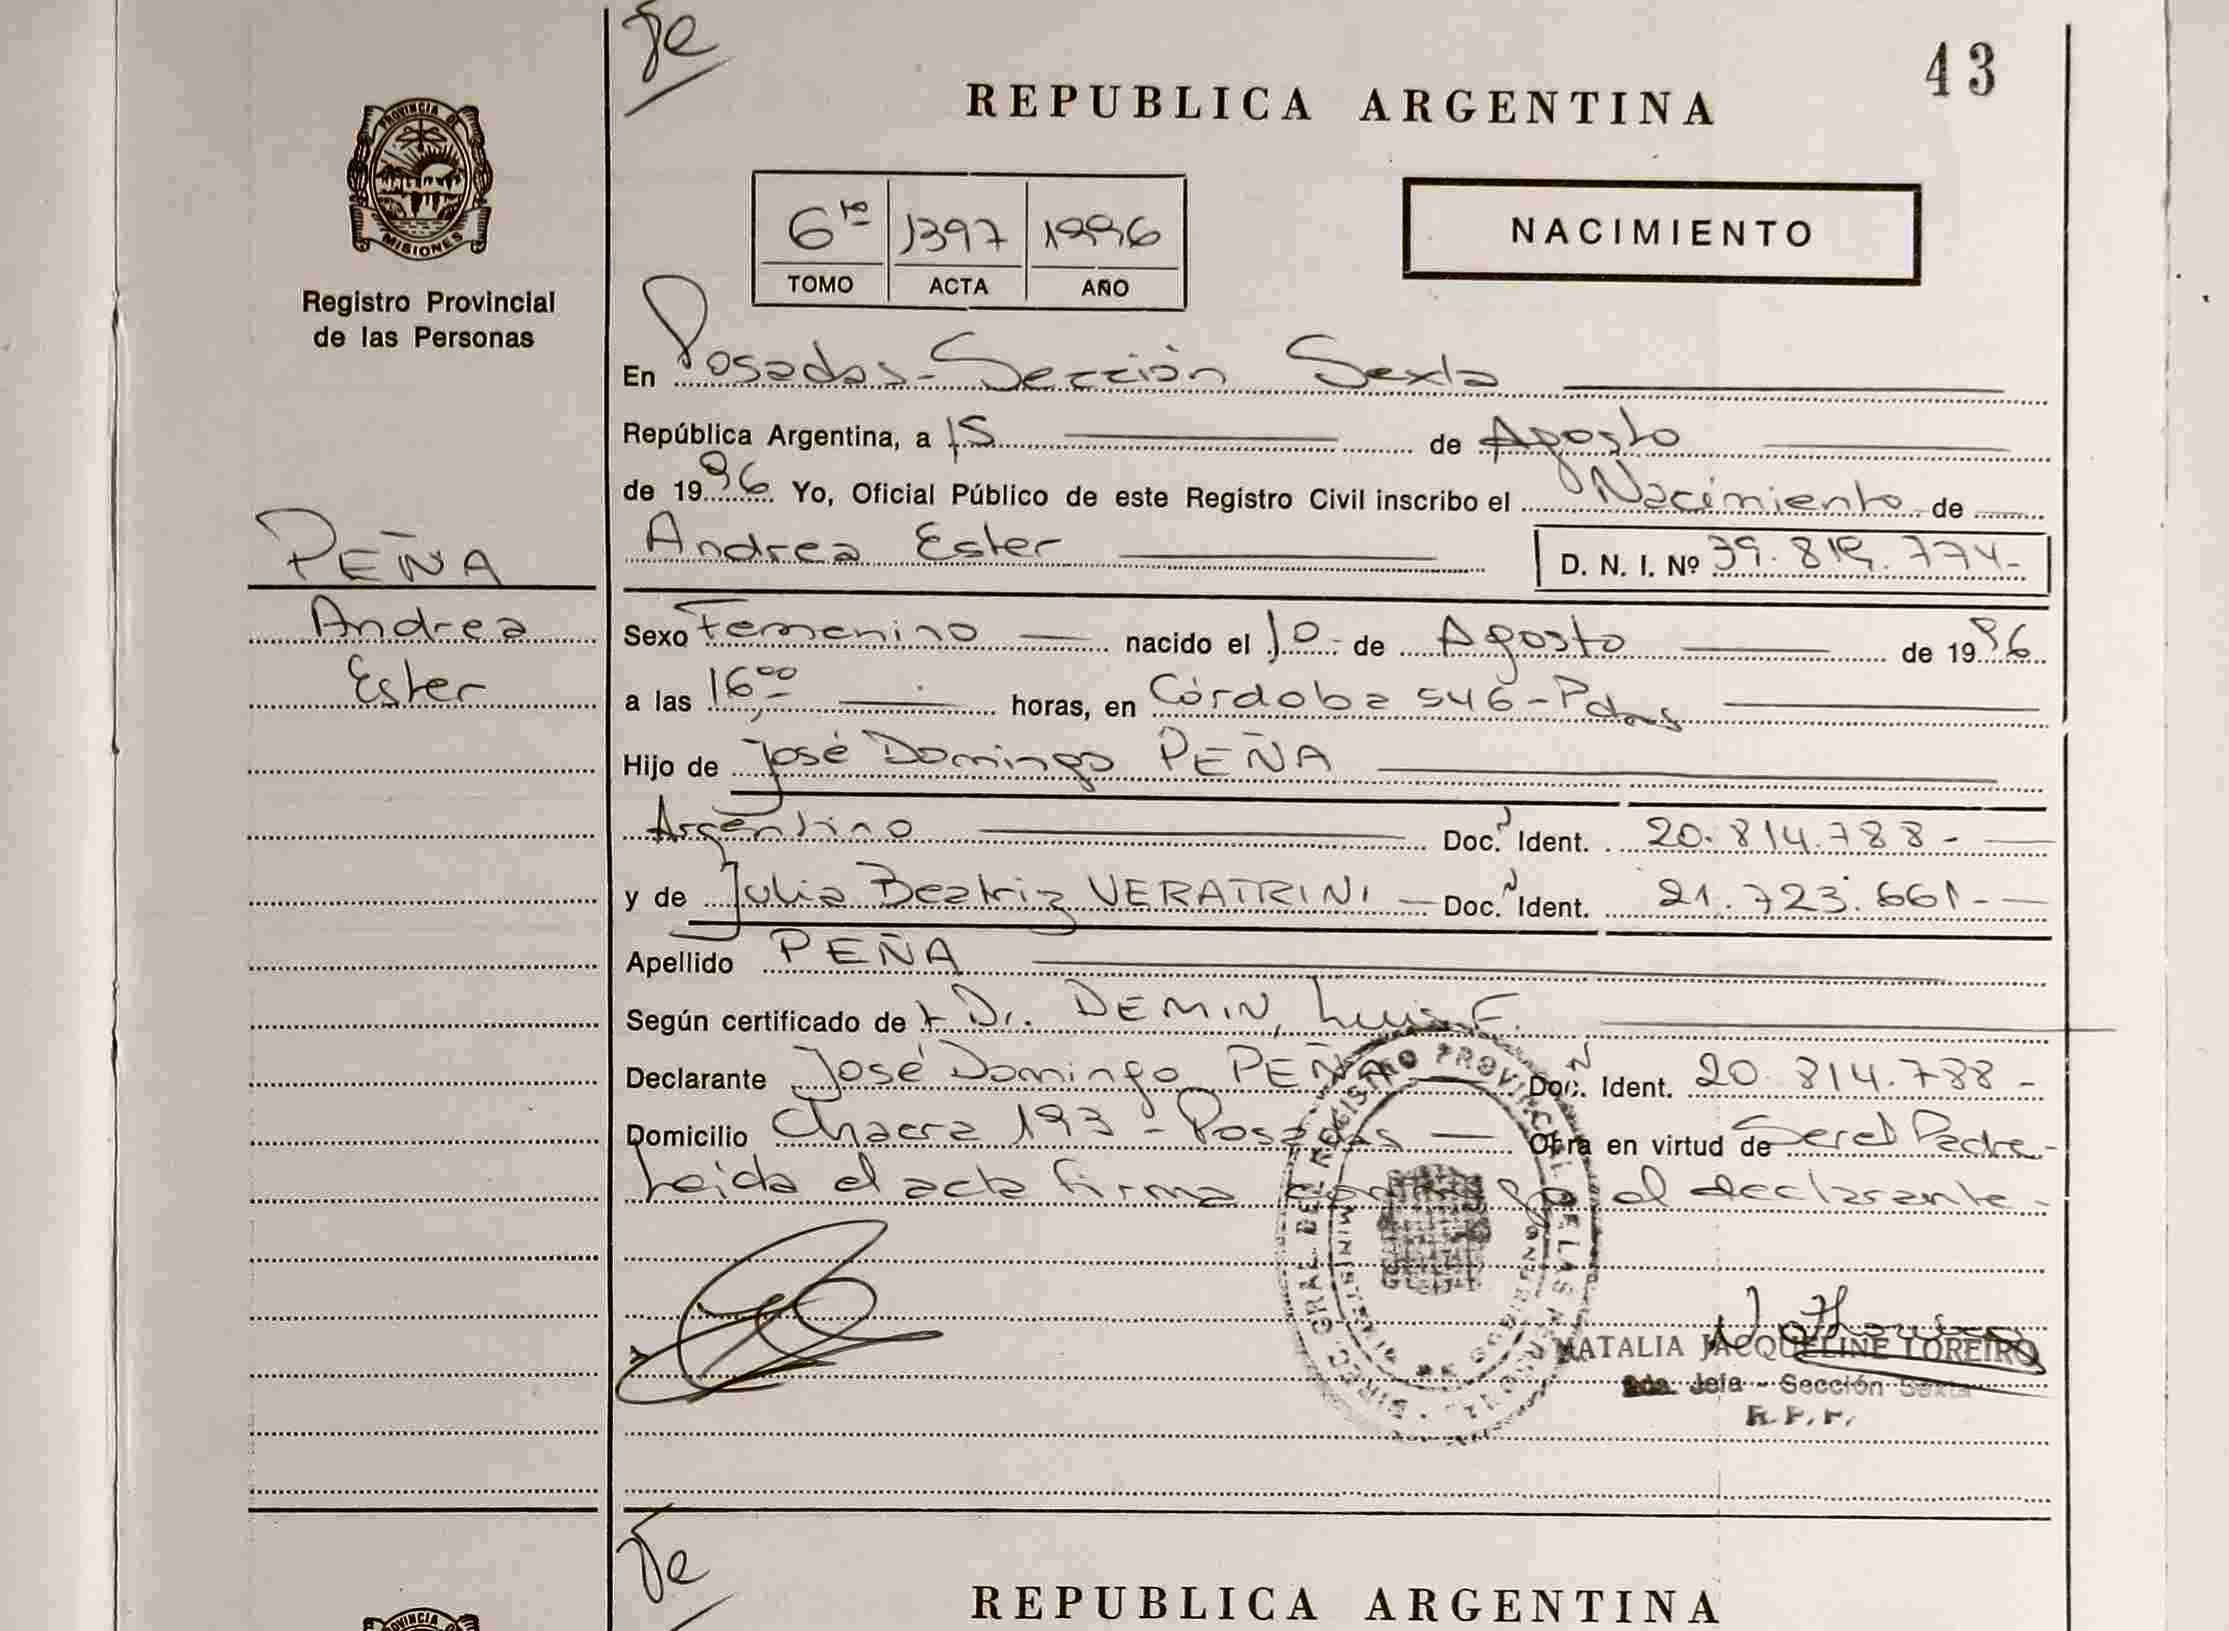 Te
43
REPUBLICA ARGENTINA
PROVINCIA DE
MISIONES
Registro Provincial
de las Personas
6ta 1397 1996
TOMO ACTA AÑO
NACIMIENTO
En Posadas - Sección Sexta
República Argentina, a 15 de Agosto
de 1996 Yo, Oficial Público de este Registro Civil inscribo el Nacimiento de
PEÑA
Andrea Ester
D. N. I. Nº 39.819.774-
Andrea
Ester
Sexo Femenino nacido el 10- de Agosto de 1996
a las 16,00 horas, en Córdoba 546 - Pdas
Hijo de José Domingo PEÑA
Argentino Doc. N Ident. 20.814.788-
y de Julia Beatriz VERATRINI - Doc. N Ident. 21.723.661-
Apellido PEÑA
Según certificado de Dr. DEMIN, Luis F.
Declarante José Domingo PEÑA Doc. N Ident. 20.814.788-
Domicilio Chacra 193 - Posadas - Obra en virtud de Ser el Padre-
Leida el acta firma conmigo el declarante-
DIREC. GRAL. DEL REGISTRO PROVINCIAL DE LAS PERSONAS
MINISTERIO DE GOBIERNO
NATALIA JACQUELINE LOREIRO
2da. Jefa - Sección Sexta
R.P.P.
Te
REPUBLICA ARGENTINA
PROVINCIA